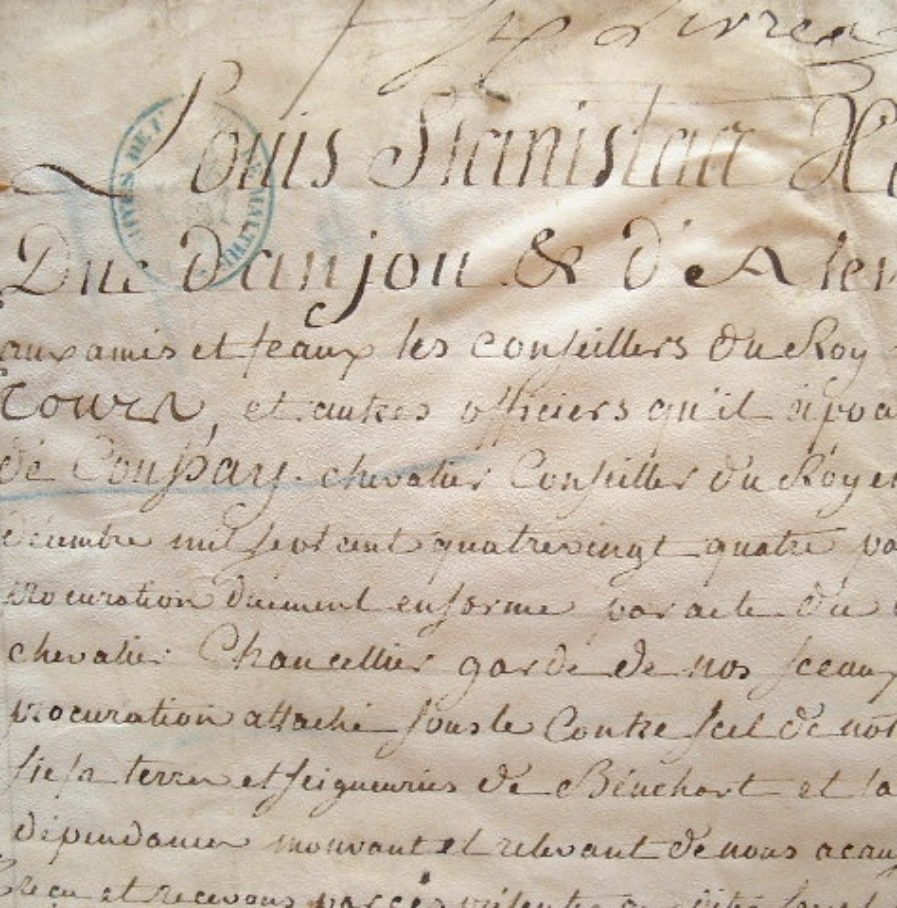 Livrea
Louis Stanislas X
Duc d'anjou & d'Alen
aux amis et feaux les conseillers du Roy
Tours, et autres officiers qu'il apa
de Coussay. chevalier Conseiller du Roy en
décembre mil sept cent quatrevingt quatre pa
procuration duement en forme par acte du
chevalier Chancellier garde de nos sceaux
procuration attaché sous le Contre scel de not
fiefs terres et seigneuries de Beuchart et la
dépendances mouvant et relevant de nous acau
reçu et recevons par ces présentes